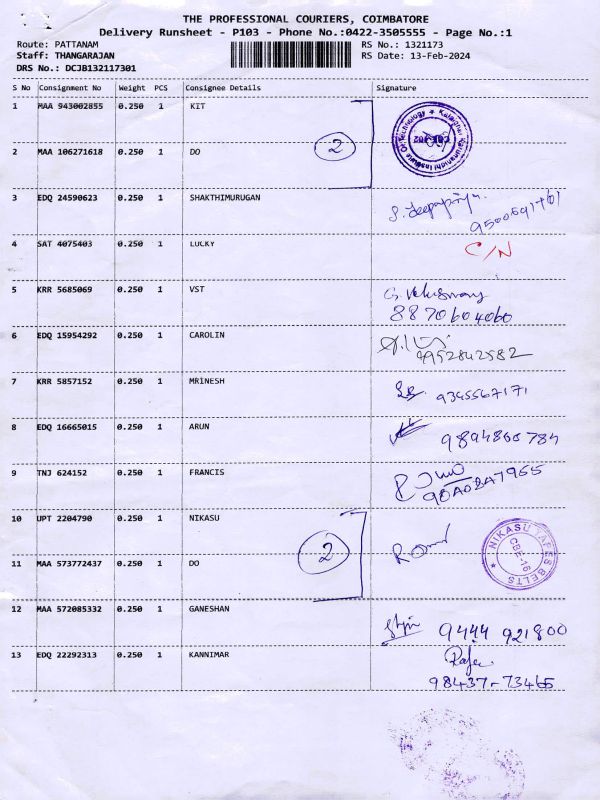 THE PROFESSIONAL COURIERS, COIMBATORE
Delivery Runsheet - P103 - Phone No.:0422-3505555 - Page No.:1
Route: PATTANAM RS No.: 1321173
Staff: THANGARAJAN RS Date: 13-Feb-2024
DRS No.: DCJB132117301
S No Consignment No Weight PCS Consignee Details Signature
1 MAA 943002855 0.250 1 KIT
2 MAA 106271618 0.250 1 DO 2
3 EDQ 24590623 0.250 1 SHAKTHIMURUGAN
4 SAT 4075403 0.250 1 LUCKY C/N
5 KRR 5685069 0.250 1 VST
8870604060
6 EDQ 15954292 0.250 1 CAROLIN
9952842582
7 KRR 5857152 0.250 1 MRINESH 9345567171
8 EDQ 16665015 0.250 1 ARUN
9 TNJ 624152 0.250 1 FRANCIS
10 UPT 2204790 0.250 1 NIKASU
NIKASU TAPES BELTS
CBE-16
11 MAA 573772437 0.250 1 DO 2
12 MAA 572085332 0.250 1 GANESHAN
9444 921800
13 EDQ 22292313 0.250 1 KANNIMAR
98437-73465